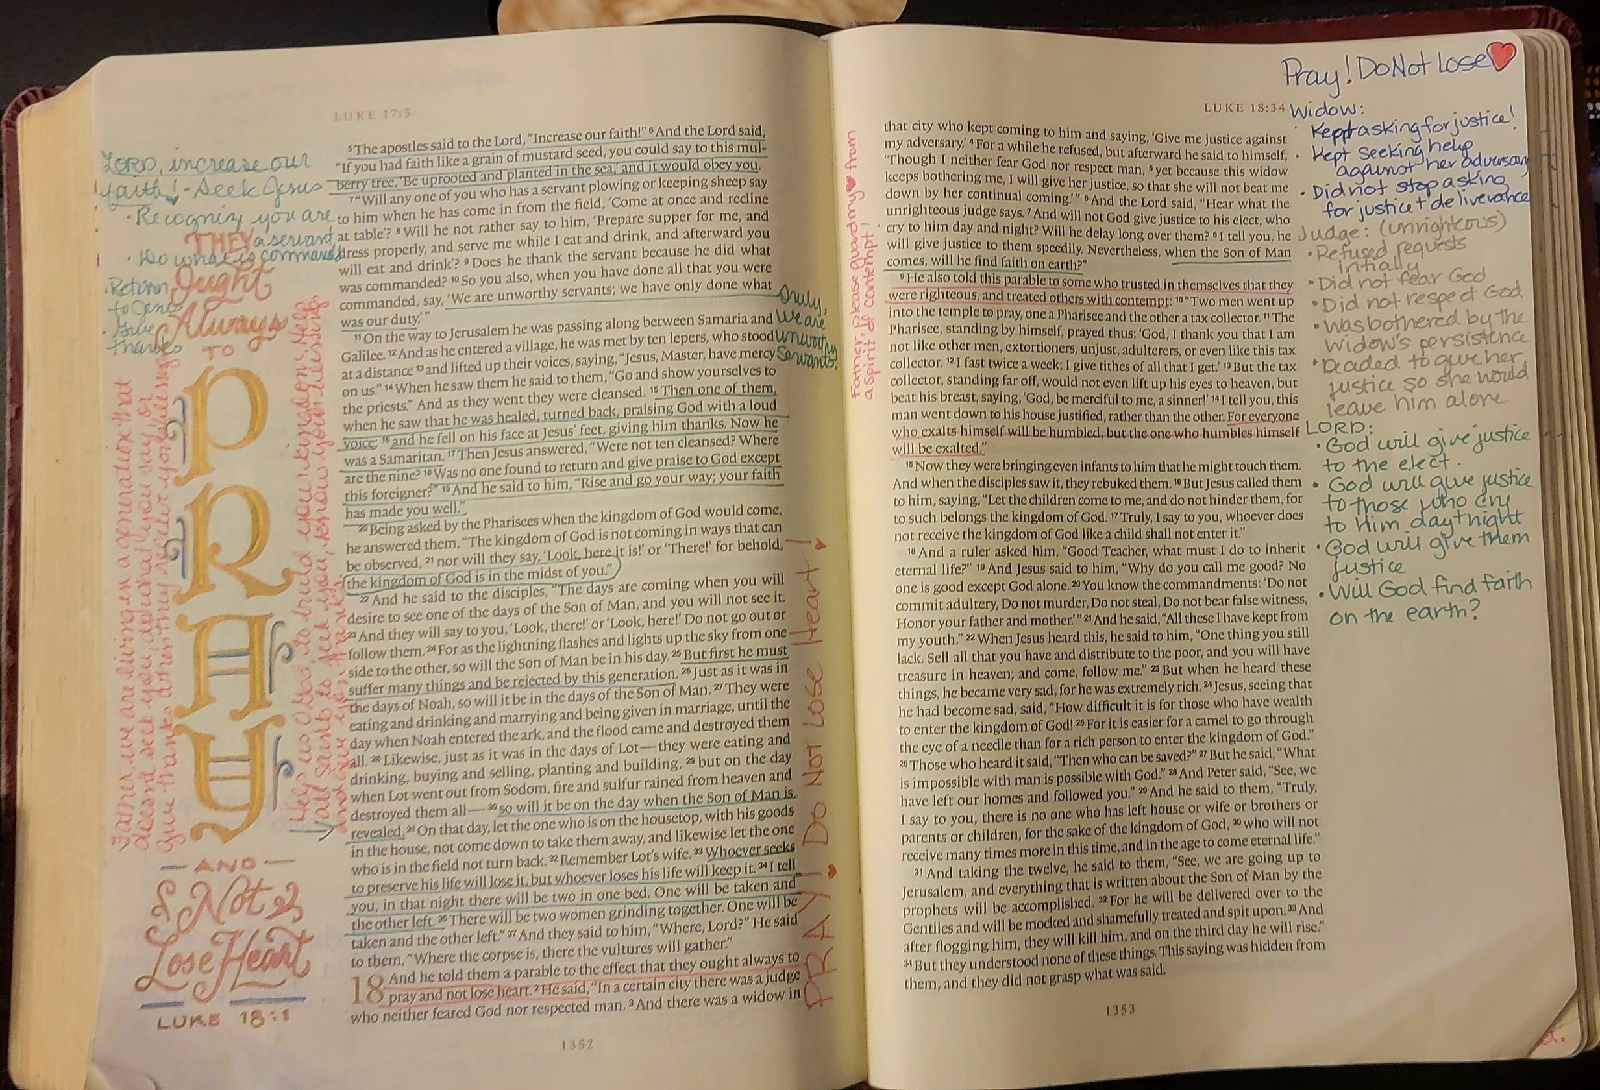 LUKE 17:5
⁵The apostles said to the Lord, “Increase our faith!” ⁶And the Lord said,
“If you had faith like a grain of mustard seed, you could say to this mul-
berry tree, ‘Be uprooted and planted in the sea,’ and it would obey you.
⁷“Will any one of you who has a servant plowing or keeping sheep say
to him when he has come in from the field, ‘Come at once and recline
at table’? ⁸Will he not rather say to him, ‘Prepare supper for me, and
dress properly, and serve me while I eat and drink, and afterward you
will eat and drink’? ⁹Does he thank the servant because he did what
was commanded? ¹⁰So you also, when you have done all that you were
commanded, say, ‘We are unworthy servants; we have only done what
was our duty.’”
¹¹On the way to Jerusalem he was passing along between Samaria and
Galilee. ¹²And as he entered a village, he was met by ten lepers, who stood
at a distance ¹³and lifted up their voices, saying, “Jesus, Master, have mercy
on us.” ¹⁴When he saw them he said to them, “Go and show yourselves to
the priests.” And as they went they were cleansed. ¹⁵Then one of them,
when he saw that he was healed, turned back, praising God with a loud
voice; ¹⁶and he fell on his face at Jesus’ feet, giving him thanks. Now he
was a Samaritan. ¹⁷Then Jesus answered, “Were not ten cleansed? Where
are the nine? ¹⁸Was no one found to return and give praise to God except
this foreigner?” ¹⁹And he said to him, “Rise and go your way; your faith
has made you well.”
²⁰Being asked by the Pharisees when the kingdom of God would come,
he answered them, “The kingdom of God is not coming in ways that can
be observed, ²¹nor will they say, ‘Look, here it is!’ or ‘There!’ for behold,
the kingdom of God is in the midst of you.”
²²And he said to the disciples, “The days are coming when you will
desire to see one of the days of the Son of Man, and you will not see it.
²³And they will say to you, ‘Look, there!’ or ‘Look, here!’ Do not go out or
follow them. ²⁴For as the lightning flashes and lights up the sky from one
side to the other, so will the Son of Man be in his day. ²⁵But first he must
suffer many things and be rejected by this generation. ²⁶Just as it was in
the days of Noah, so will it be in the days of the Son of Man. ²⁷They were
eating and drinking and marrying and being given in marriage, until the
day when Noah entered the ark, and the flood came and destroyed them
all. ²⁸Likewise, just as it was in the days of Lot—they were eating and
drinking, buying and selling, planting and building, ²⁹but on the day
when Lot went out from Sodom, fire and sulfur rained from heaven and
destroyed them all—³⁰so will it be on the day when the Son of Man is
revealed. ³¹On that day, let the one who is on the housetop, with his goods
in the house, not come down to take them away, and likewise let the one
who is in the field not turn back. ³²Remember Lot’s wife. ³³Whoever seeks
to preserve his life will lose it, but whoever loses his life will keep it. ³⁴I tell
you, in that night there will be two in one bed. One will be taken and
the other left. ³⁵There will be two women grinding together. One will be
taken and the other left.” ³⁷And they said to him, “Where, Lord?” He said
to them, “Where the corpse is, there the vultures will gather.”
18 And he told them a parable to the effect that they ought always to
pray and not lose heart. ²He said, “In a certain city there was a judge
who neither feared God nor respected man. ³And there was a widow in
1352
LORD, increase our
faith! - Seek Jesus
· Recognize you are
a servant
· Do what is commanded
· Return
to Jesus
· Give
thanks
THEY
Ought
Always
TO
PRAY
AND
Not
Lose Heart
LUKE 18:1
Father, we are living in a generation that
doesn't seek you, do what you say, or
give thanks when they receive your blessings.
Help us
build your kingdom. Help
all saints to seek you, know your blessings
and give you thanks.
Truly,
we are
unworthy
servants!
PRAY! Do Not Lose Heart!
LUKE 18:34
that city who kept coming to him and saying, ‘Give me justice against
my adversary.’ ⁴For a while he refused, but afterward he said to himself,
‘Though I neither fear God nor respect man, ⁵yet because this widow
keeps bothering me, I will give her justice, so that she will not beat me
down by her continual coming.’” ⁶And the Lord said, “Hear what the
unrighteous judge says. ⁷And will not God give justice to his elect, who
cry to him day and night? Will he delay long over them? ⁸I tell you, he
will give justice to them speedily. Nevertheless, when the Son of Man
comes, will he find faith on earth?”
⁹He also told this parable to some who trusted in themselves that they
were righteous, and treated others with contempt: ¹⁰“Two men went up
into the temple to pray, one a Pharisee and the other a tax collector. ¹¹The
Pharisee, standing by himself, prayed thus: ‘God, I thank you that I am
not like other men, extortioners, unjust, adulterers, or even like this tax
collector. ¹²I fast twice a week; I give tithes of all that I get.’ ¹³But the tax
collector, standing far off, would not even lift up his eyes to heaven, but
beat his breast, saying, ‘God, be merciful to me, a sinner!’ ¹⁴I tell you, this
man went down to his house justified, rather than the other. For everyone
who exalts himself will be humbled, but the one who humbles himself
will be exalted.”
¹⁵Now they were bringing even infants to him that he might touch them.
And when the disciples saw it, they rebuked them. ¹⁶But Jesus called them
to him, saying, “Let the children come to me, and do not hinder them, for
to such belongs the kingdom of God. ¹⁷Truly, I say to you, whoever does
not receive the kingdom of God like a child shall not enter it.”
¹⁸And a ruler asked him, “Good Teacher, what must I do to inherit
eternal life?” ¹⁹And Jesus said to him, “Why do you call me good? No
one is good except God alone. ²⁰You know the commandments: ‘Do not
commit adultery, Do not murder, Do not steal, Do not bear false witness,
Honor your father and mother.’” ²¹And he said, “All these I have kept from
my youth.” ²²When Jesus heard this, he said to him, “One thing you still
lack. Sell all that you have and distribute to the poor, and you will have
treasure in heaven; and come, follow me.” ²³But when he heard these
things, he became very sad, for he was extremely rich. ²⁴Jesus, seeing that
he had become sad, said, “How difficult it is for those who have wealth
to enter the kingdom of God! ²⁵For it is easier for a camel to go through
the eye of a needle than for a rich person to enter the kingdom of God.”
²⁶Those who heard it said, “Then who can be saved?” ²⁷But he said, “What
is impossible with man is possible with God.” ²⁸And Peter said, “See, we
have left our homes and followed you.” ²⁹And he said to them, “Truly,
I say to you, there is no one who has left house or wife or brothers or
parents or children, for the sake of the kingdom of God, ³⁰who will not
receive many times more in this time, and in the age to come eternal life.”
³¹And taking the twelve, he said to them, “See, we are going up to
Jerusalem, and everything that is written about the Son of Man by the
prophets will be accomplished. ³²For he will be delivered over to the
Gentiles and will be mocked and shamefully treated and spit upon. ³³And
after flogging him, they will kill him, and on the third day he will rise.”
³⁴But they understood none of these things. This saying was hidden from
them, and they did not grasp what was said.
1353
Father, please guard my ♥ from
a spirit of contempt!
Pray! Do Not Lose ♥
Widow:
· Kept asking for justice!
· Kept seeking help
against her adversary
· Did not stop asking
for justice + deliverance
Judge: (unrighteous)
· Refused requests
initially
· Did not fear God
· Did not respect God
· Was bothered by the
widow's persistence
· Decided to give her
justice so she would
leave him alone
LORD:
· God will give justice
to the elect.
· God will give justice
to those who cry
to Him day + night
· God will give them
justice
· Will God find faith
on the earth?